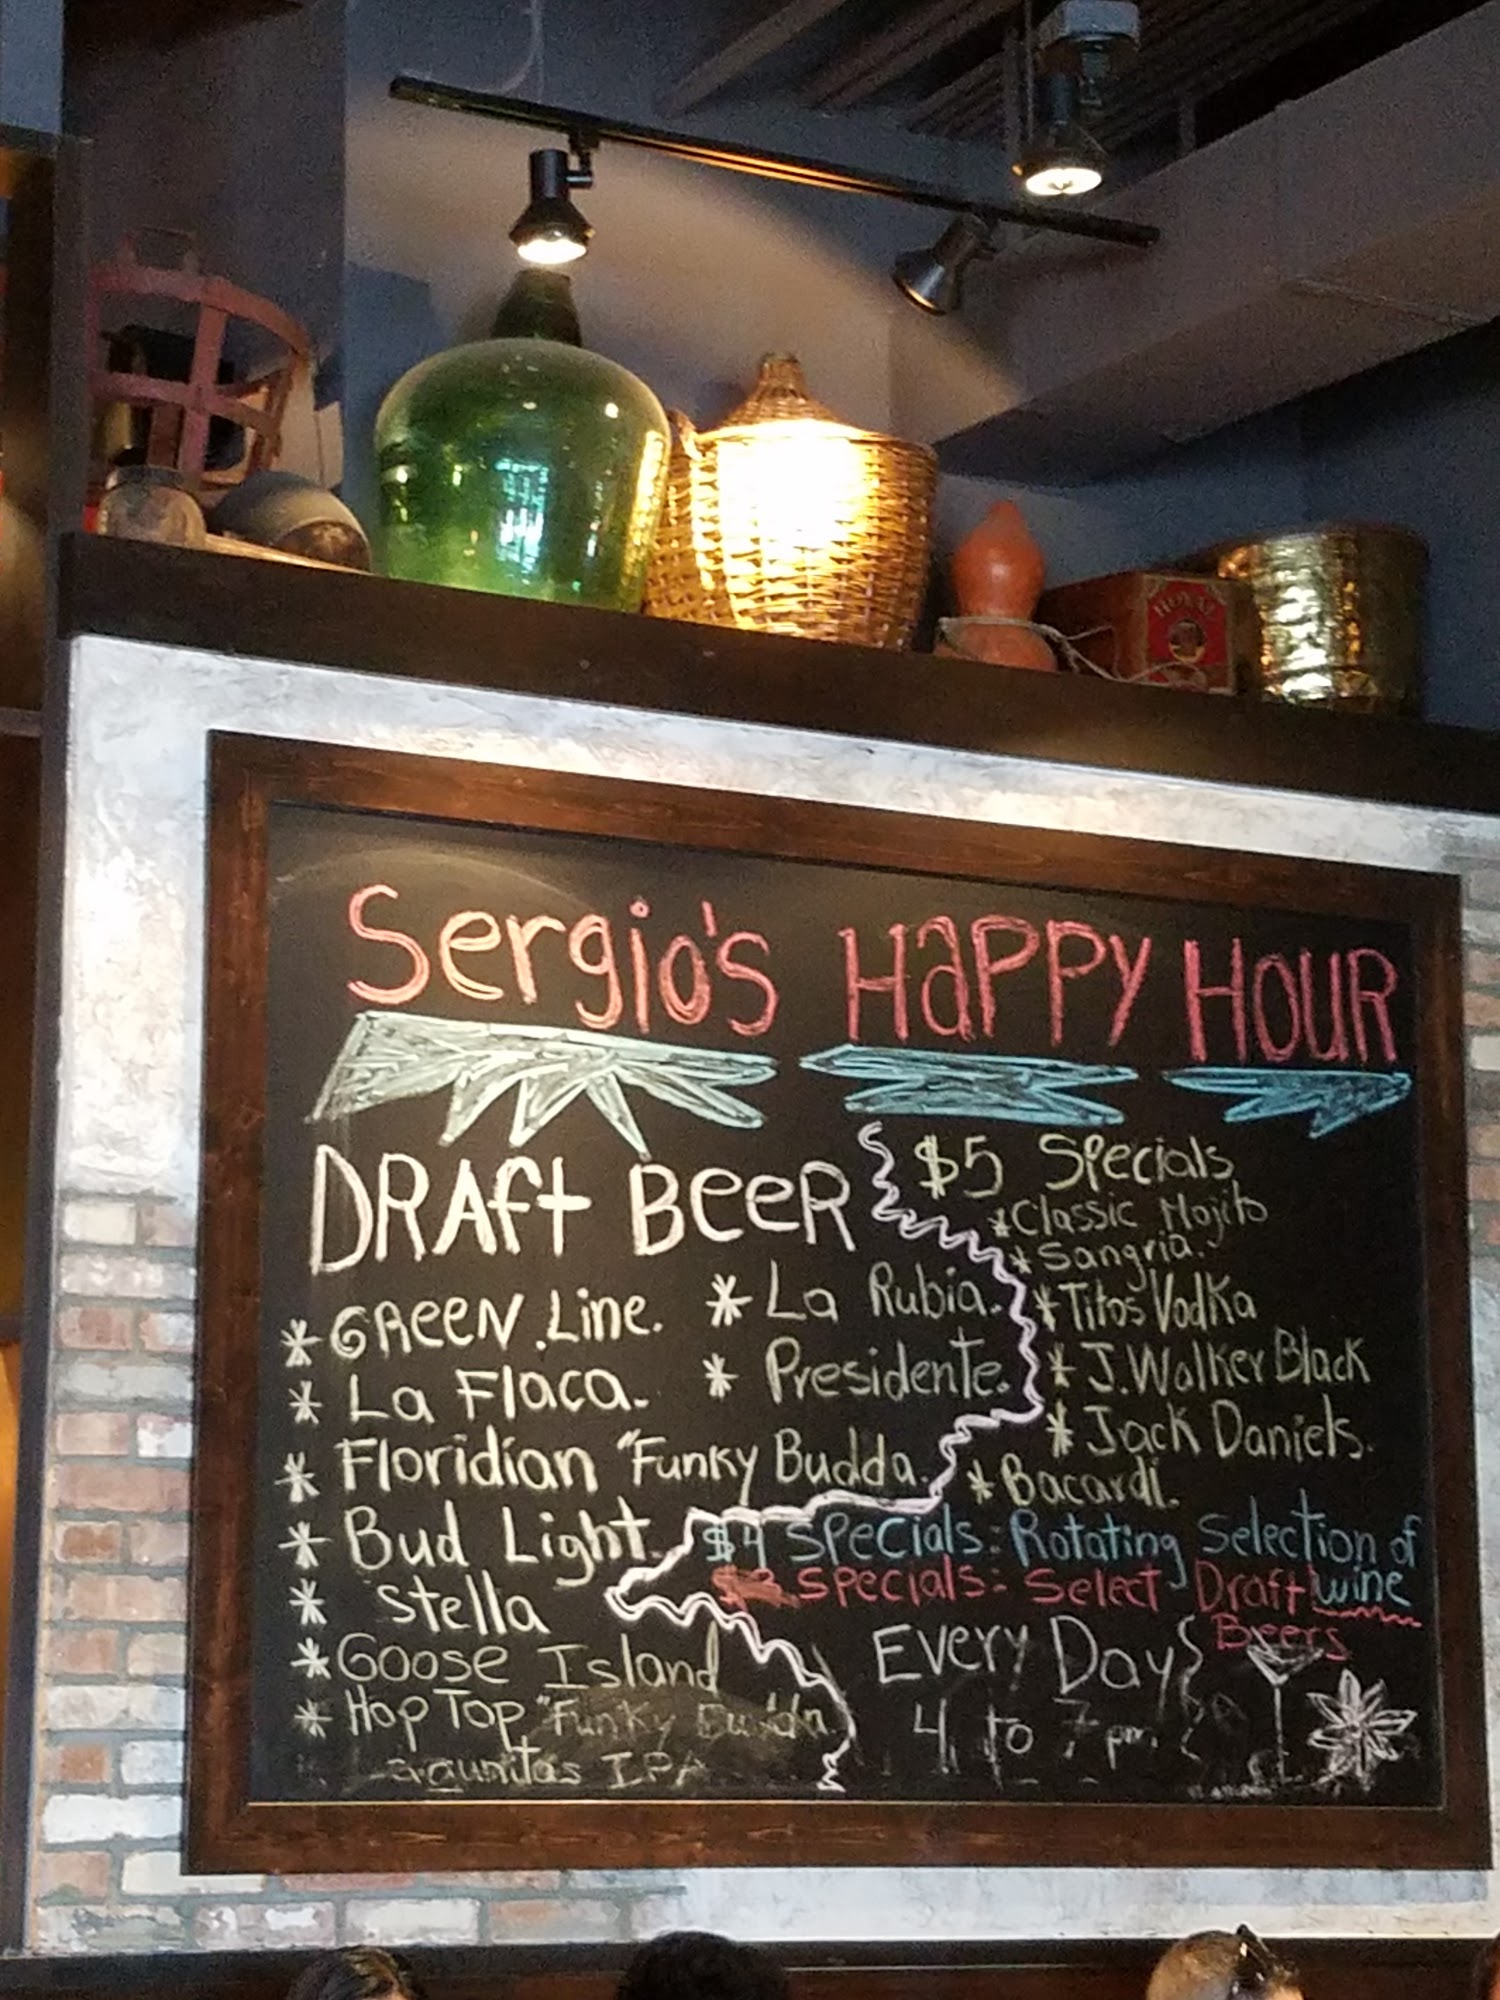 ROYAL
Sergio's HaPPy HOUR
DRAft BeeR
* GReeN Line.
* La Flaca.
* Floridian "Funky Budda.
* Bud Light.
* Stella
* Goose Island
* Hop Top "Funky Budda.
Lagunitas IPA
* La Rubia.
* Presidente.
$5 Specials
*Classic Mojito
*Sangria.
*Titos Vodka
* J.Walker Black
* Jack Daniels.
* Bacardi.
$4 Specials: Rotating Selection of
wine
Specials: Select Draft
Beers
Every Day
4 to 7 pm.